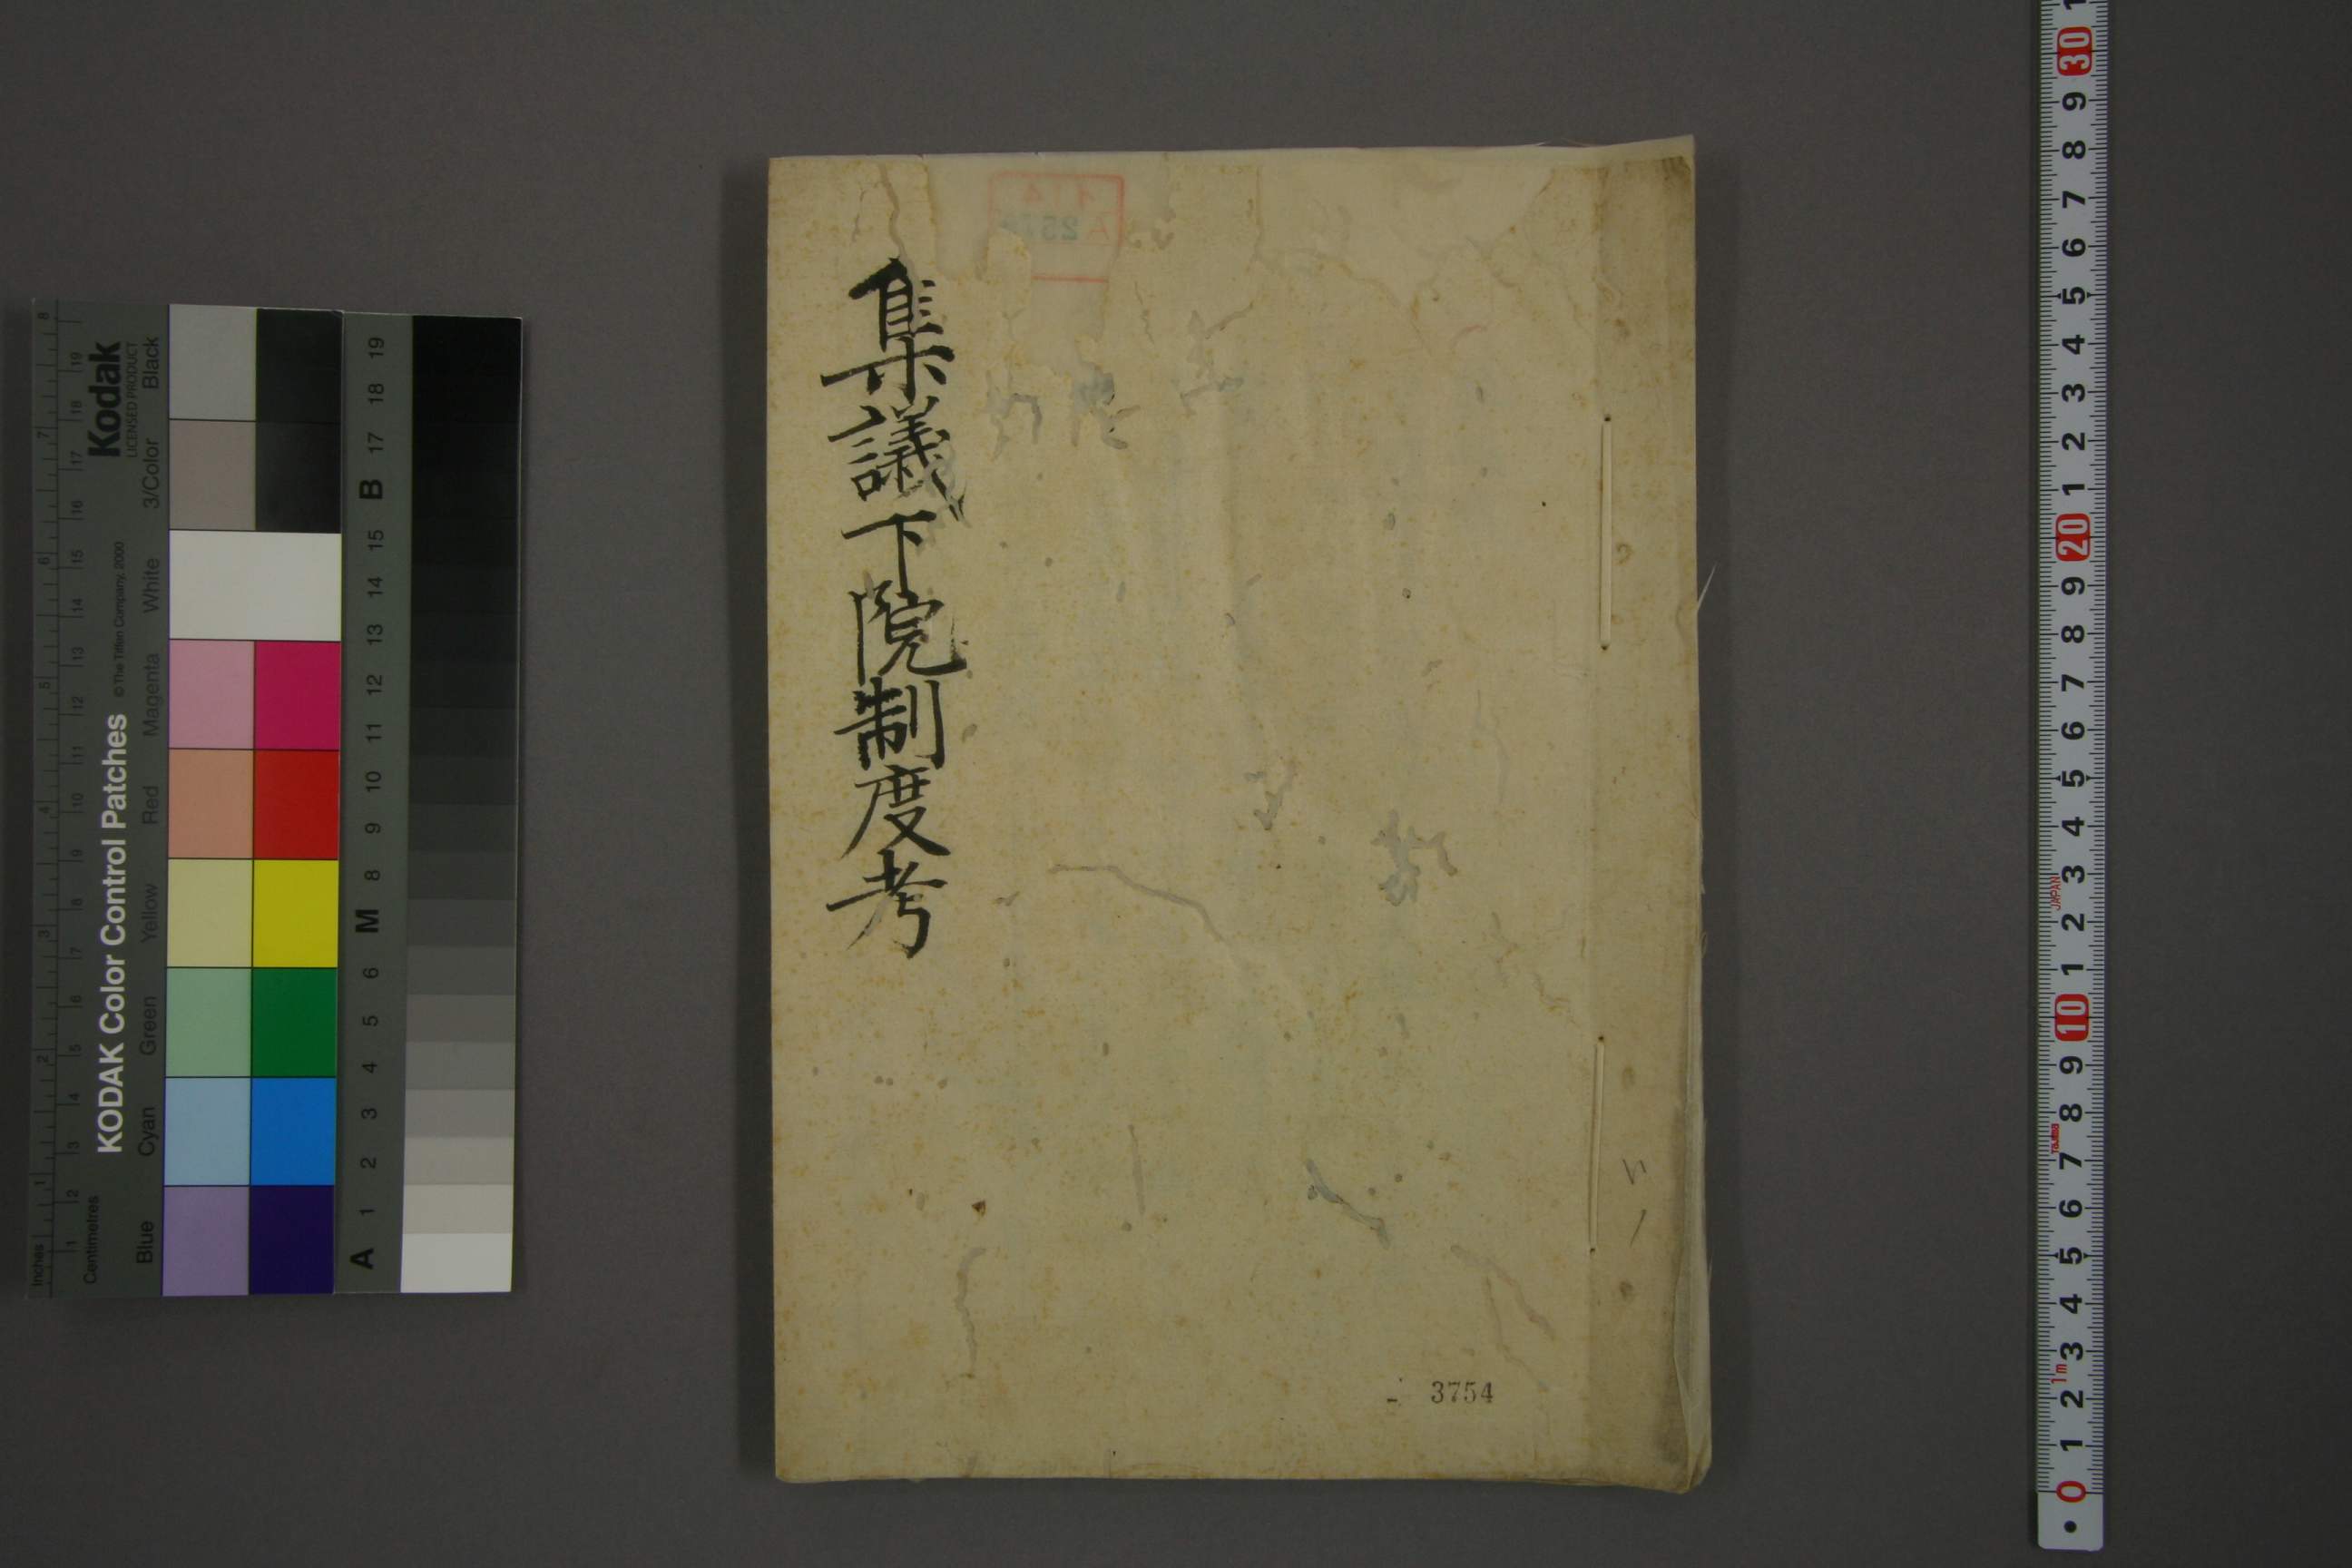 集議下院制度考
3754
Kodak
LICENSED PRODUCT
KODAK Color Control Patches
© The Tiffen Company, 2000
Inches
Centimetres
Blue
Cyan
Green
Yellow
Red
Magenta
White
3/Color
Black
A 1 2 3 4 5 6 M 8 9 10 11 12 13 14 15 B 17 18 19
0 1 2 3 4 5 6 7 8 9 10 1 2 3 4 5 6 7 8 9 20 1 2 3 4 5 6 7 8 9 30 1
1m
JAPAN